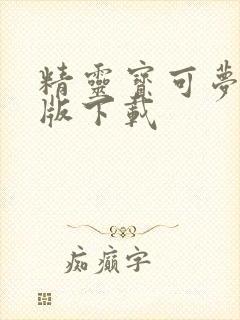 精靈寶可夢
版下載
痴癲字